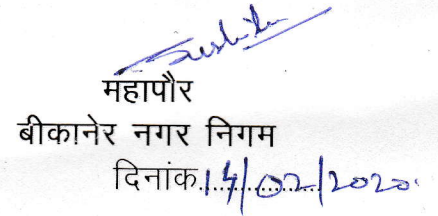 महापौर
बीकानेर नगर निगम
दिनांक..14/02/2020.